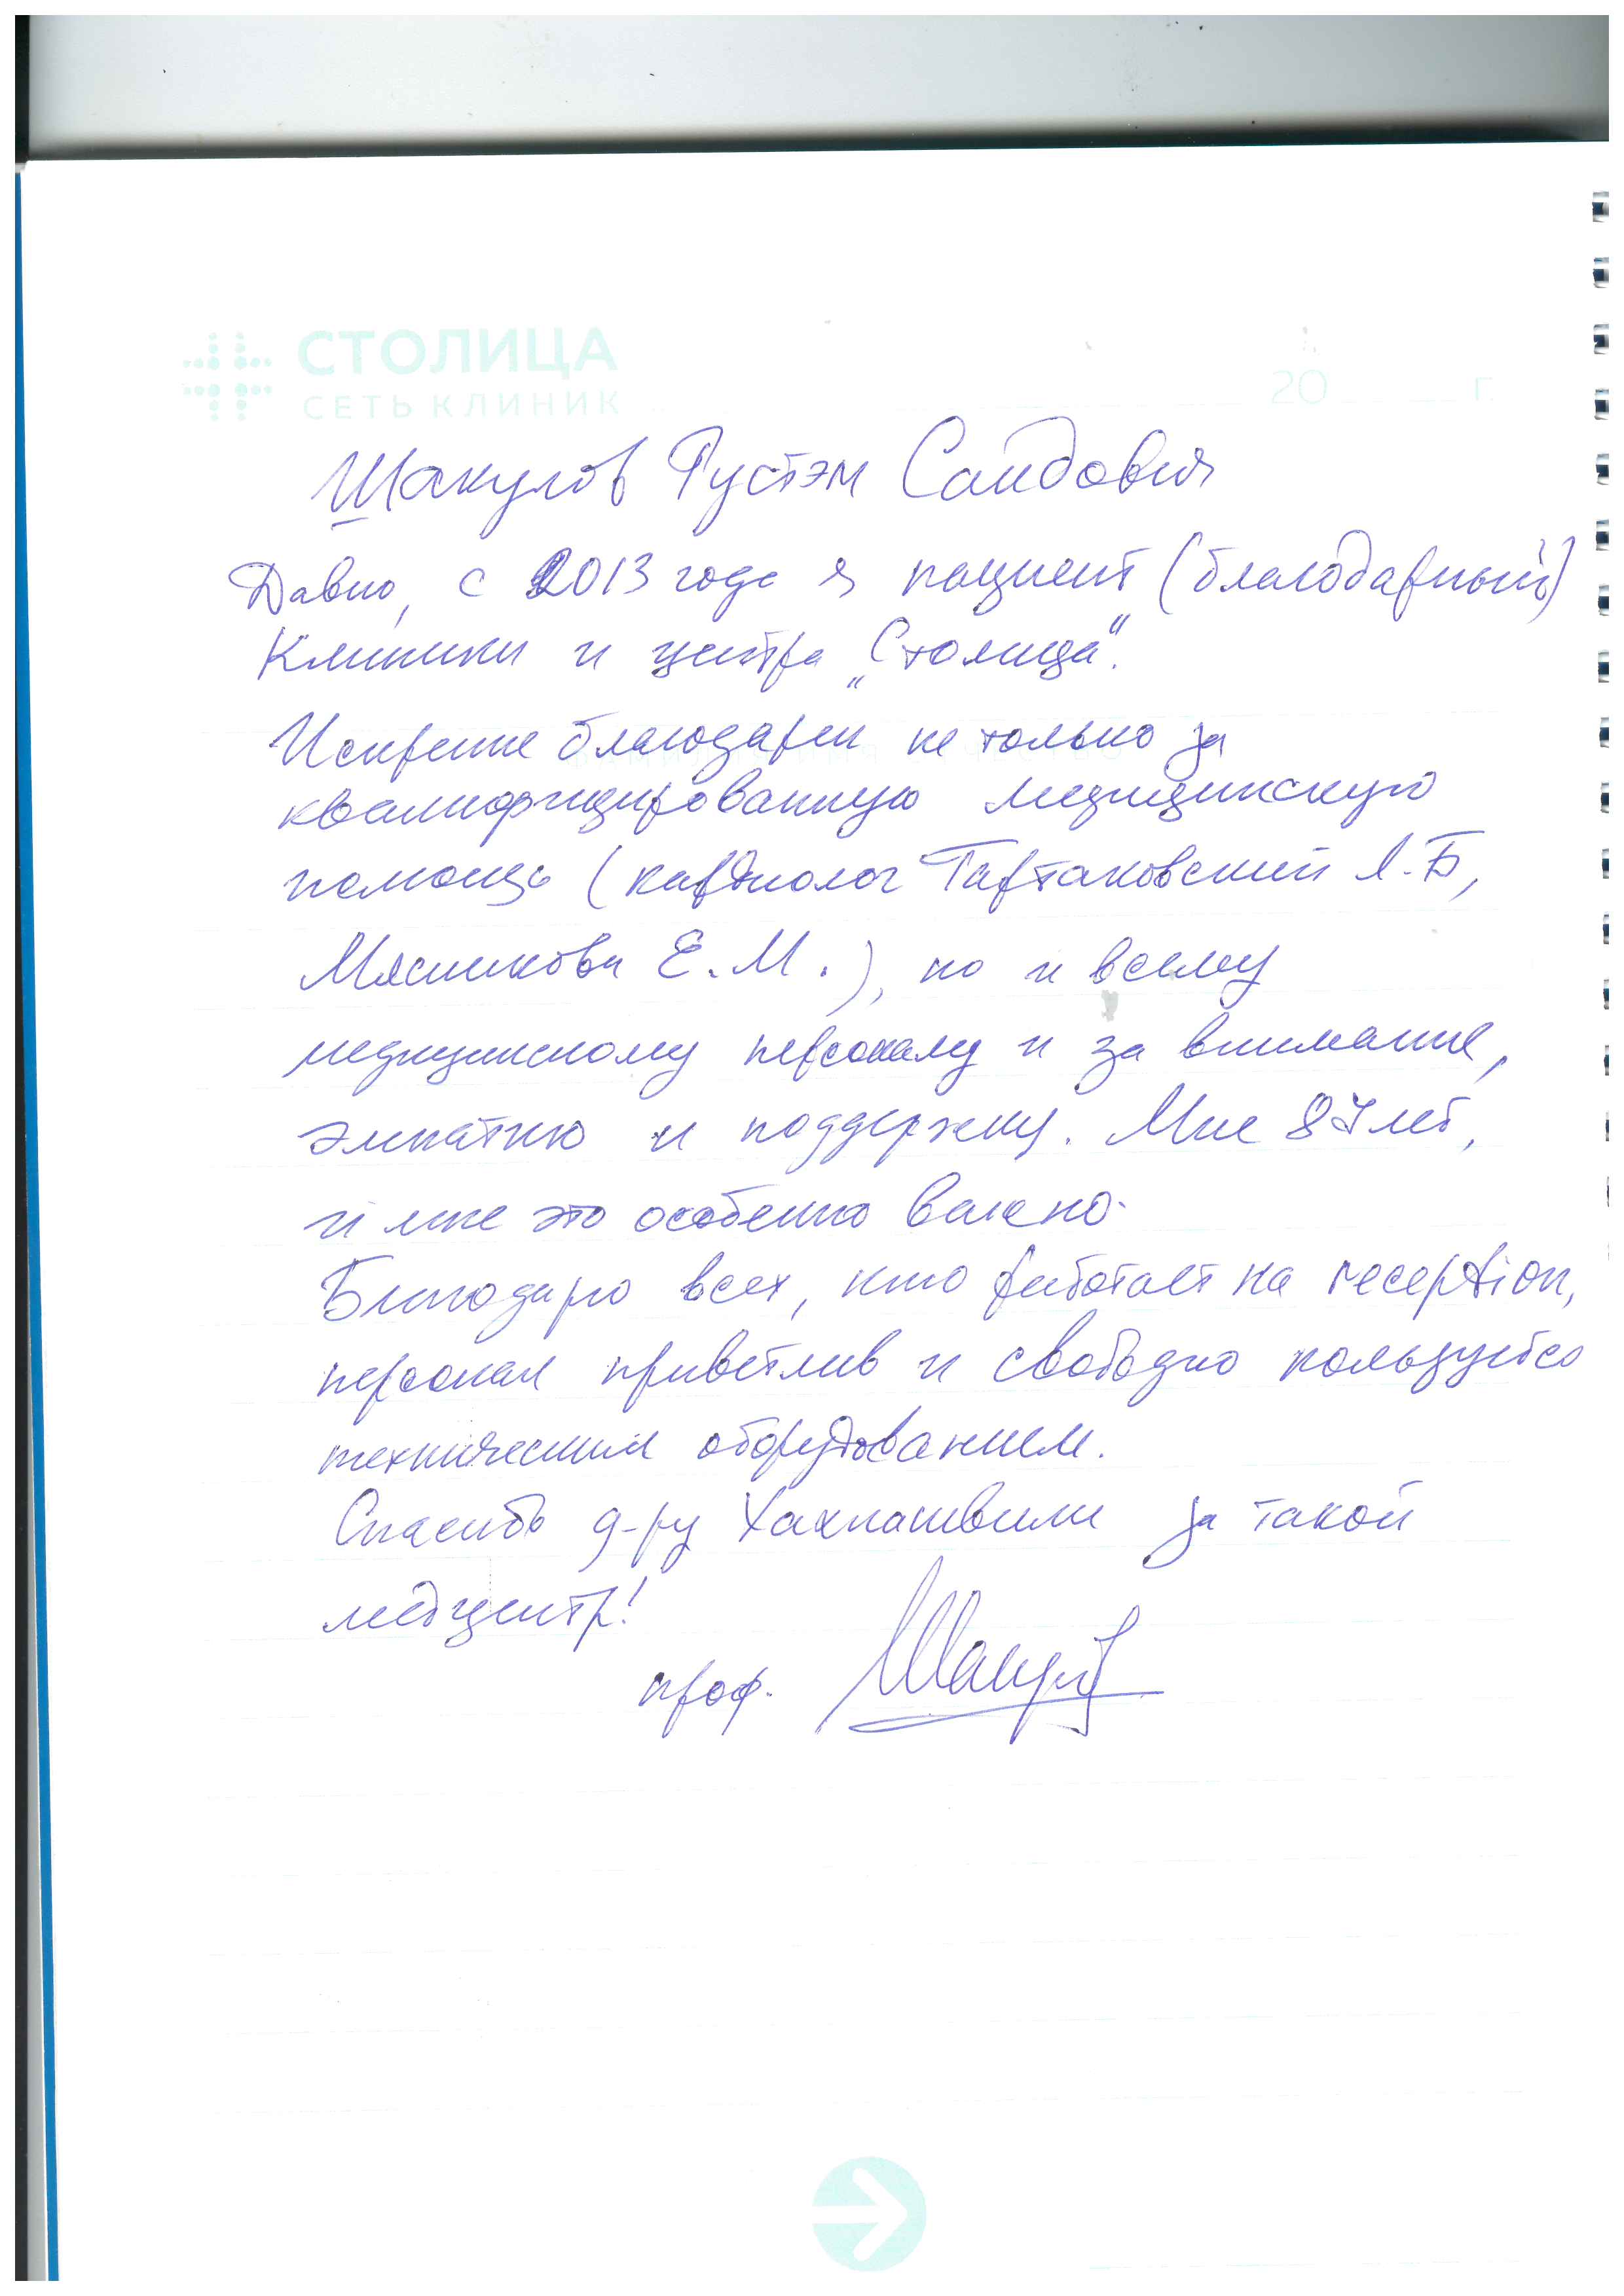 СТОЛИЦА
СЕТЬ КЛИНИК
20 г.
Шакулов Рустэм Саидович
Давно, с 2013 года я пациент (благодарный)
Клиники и центра „Столица".
Искренне благодарен не только за
квалифицированную медицинскую
помощь (кардиолог Тартаковский Л.Б,
Мясникова Е.М.), но и всему
медицинскому персоналу и за внимание,
эмпатию и поддержку. Мне 87 лет,
и мне это особенно важно.
Благодарю всех, кто работает на reception,
персонал приветлив и свободно пользуется
техническим оборудованием.
Спасибо д-ру Хахпашвили за такой
медцентр!
проф.